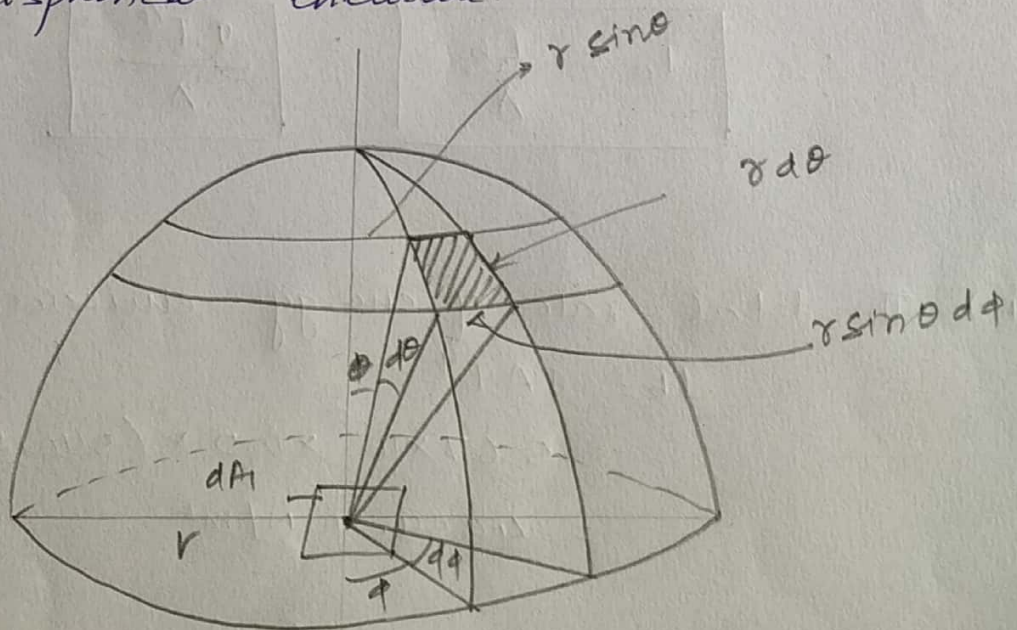 r sinθ
r dθ
r sin θ dφ
θ dθ
dA1
r
dφ
φ